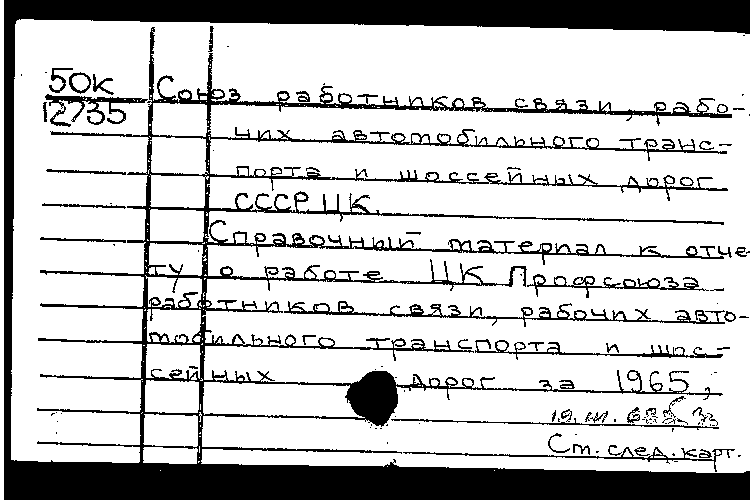 50К Союз работников связи, рабо-
12735 чих автомобильного транс-
порта и шоссейных дорог
СССР ЦК.
Справочный материал к отче-
ту о работе ЦК Профсоюза
работников связи, рабочих авто-
мобильного транспорта и шос-
сейных дорог за 1965,
19.III.68
Ст. след. карт.